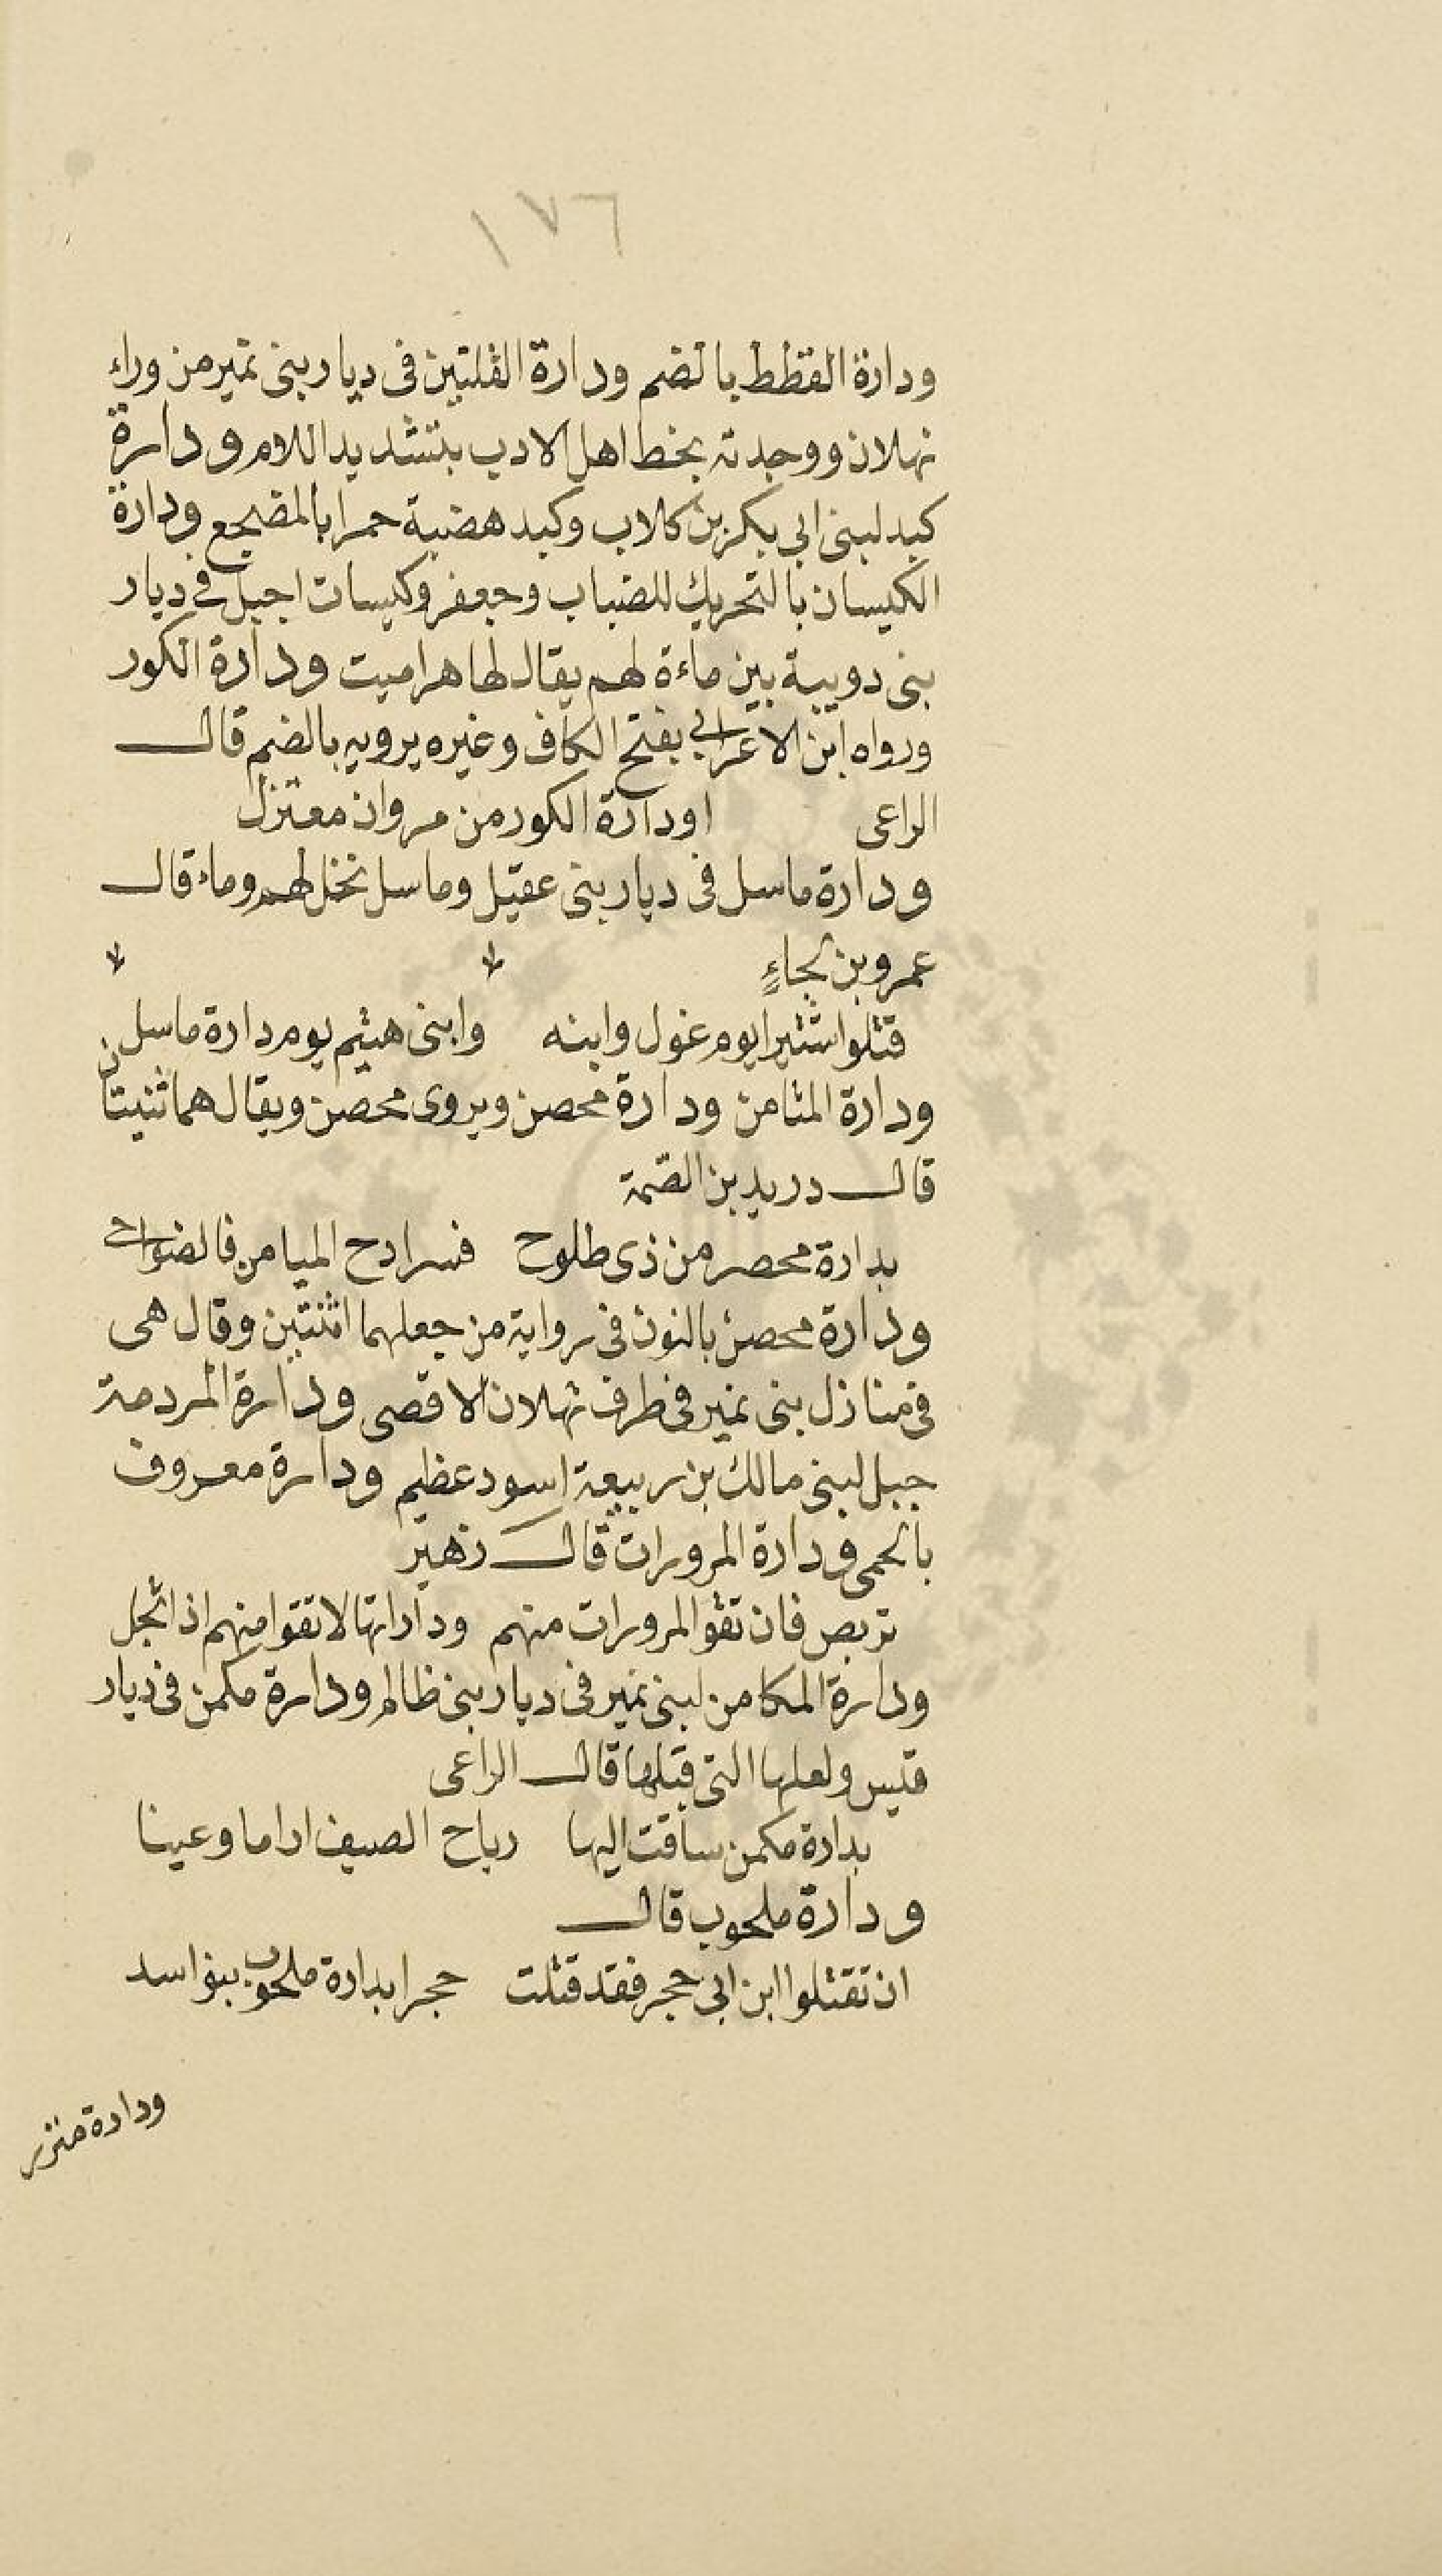 ١٧٦
ودارة القطط بالضم ودارة القلتين فى ديار بنى نمير من وراء
ثهلان ووجدته بخط اهل الادب بتشديد اللام ودارة
كبد لبنى ابى بكر بن كلاب وكبد هضبة حمرا بالمضجع ودارة
الكبسان بالتحريك للضباب وجعفر وكبسات اجبل فى ديار
بنى دويبة بين ماءة لهم يقال لها هراميت ودارة الكور
ورواه ابن الاعرابي بفتح الكاف وغيره يرويه بالضم قال
الراعى او دارة الكور من مروان معتزل
ودارة ماسل فى ديار بنى عقيل وماسل نخل لهم وماء قال
عمرو بن لجاءٍ
قتلوا شتيرا يوم غول وابنه وابنى هثيم يوم دارة ماسل
ودارة المثامن ودارة محصن ويروى محصن ويقال هما ثنيتان
قال دريد بن الصّمة
بدارة محصر من ذى طلوح فسرادح الميامن فالضواحي
ودارة محصن بالنون فى رواية من جعلهما اثنتين وقال هى
فى منازل بنى نمير فى طرف ثهلان الاقصى ودارة المردمة
جبل لبنى مالك بن ربيعة اسود عظيم ودارة معروف
بالحمى ودارة المرورات قال زهير
تربص فان تقو المرورات منهم وداراتها لا تقوا منهم اذا نجل
ودارة المكامن لبنى نمير فى ديار بنى ظالم ودارة مكمن فى ديار
قيس ولعلها التى قبلها قال الراعى
بدارة مكمن ساقت اليها رياح الصيف اراما وعينا
ودارة ملحوب قال
ان تقتلوا ابن ابى حجر فقد قتلت حجرا بدارة ملحوب بنو اسد
ودارة منزر